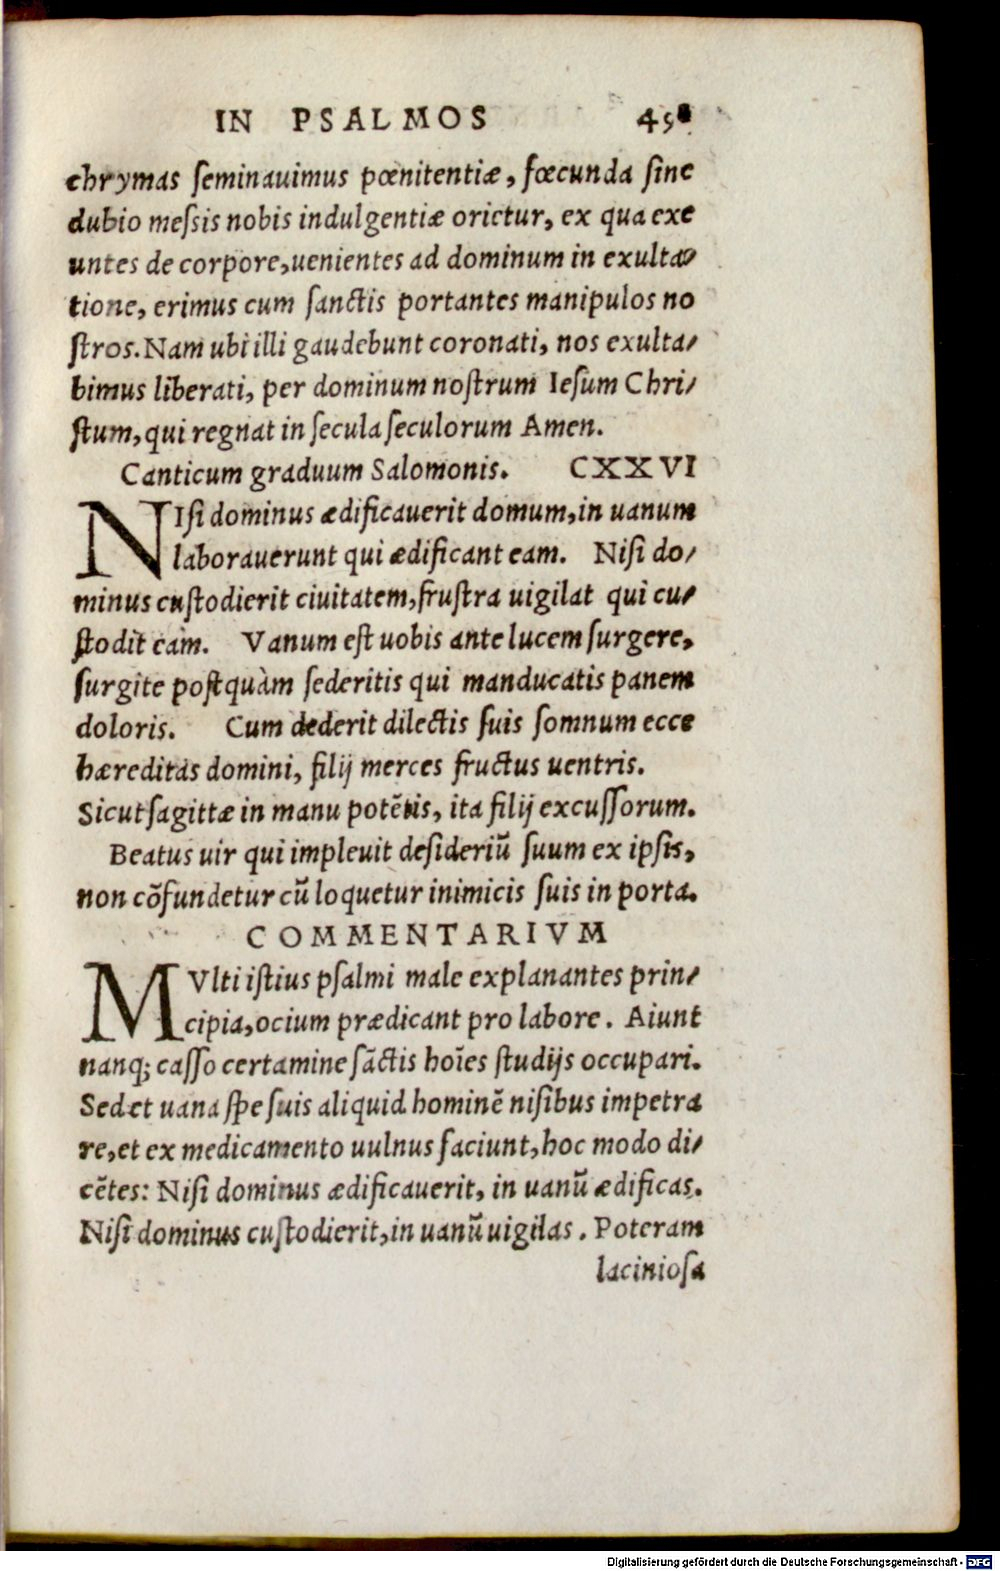 IN PSALMOS 45
chrymas ſeminauimus pœnitentiæ, fœcunda ſine
dubio meſsis nobis indulgentiæ orietur, ex qua exe
untes de corpore,uenientes ad dominum in exulta⸗
tione, erimus cum ſanctis portantes manipulos no
ſtros. Nam ubi illi gaudebunt coronati, nos exulta⸗
bimus liberati, per dominum noſtrum Ieſum Chri⸗
ſtum, qui regnat in ſecula ſeculorum Amen.
Canticum graduum Salomonis. CXXVI
NIſi dominus ædificauerit domum, in uanum
laborauerunt qui ædificant eam. Niſi do⸗
minus cuſtodierit ciuitatem, fruſtra uigilat qui cu⸗
ſtodit eam. Vanum eſt uobis ante lucem ſurgere,
ſurgite poſtquàm ſederitis qui manducatis panem
doloris. Cum dederit dilectis ſuis ſomnum ecce
hæreditas domini, filij merces fructus uentris.
Sicut ſagittæ in manu potẽtis, ita filij excuſſorum.
Beatus uir qui impleuit deſideriũ ſuum ex ipſis,
non cõfundetur cũ loquetur inimicis ſuis in porta.
COMMENTARIVM
MVlti iſtius pſalmi male explanantes prin⸗
cipia, ocium prædicant pro labore. Aiunt
nanq; caſſo certamine ſãctis hoĩes ſtudijs occupari.
Sed et uana ſpe ſuis aliquid hominẽ niſibus impetra
re, et ex medicamento uulnus faciunt, hoc modo di⸗
cẽtes: Niſi dominus ædificauerit, in uanũ ædificas.
Niſi dominus cuſtodierit, in uanũ uigilas. Poteram
lacinioſa
Digitalisierung gefördert durch die Deutsche Forschungsgemeinschaft - DFG